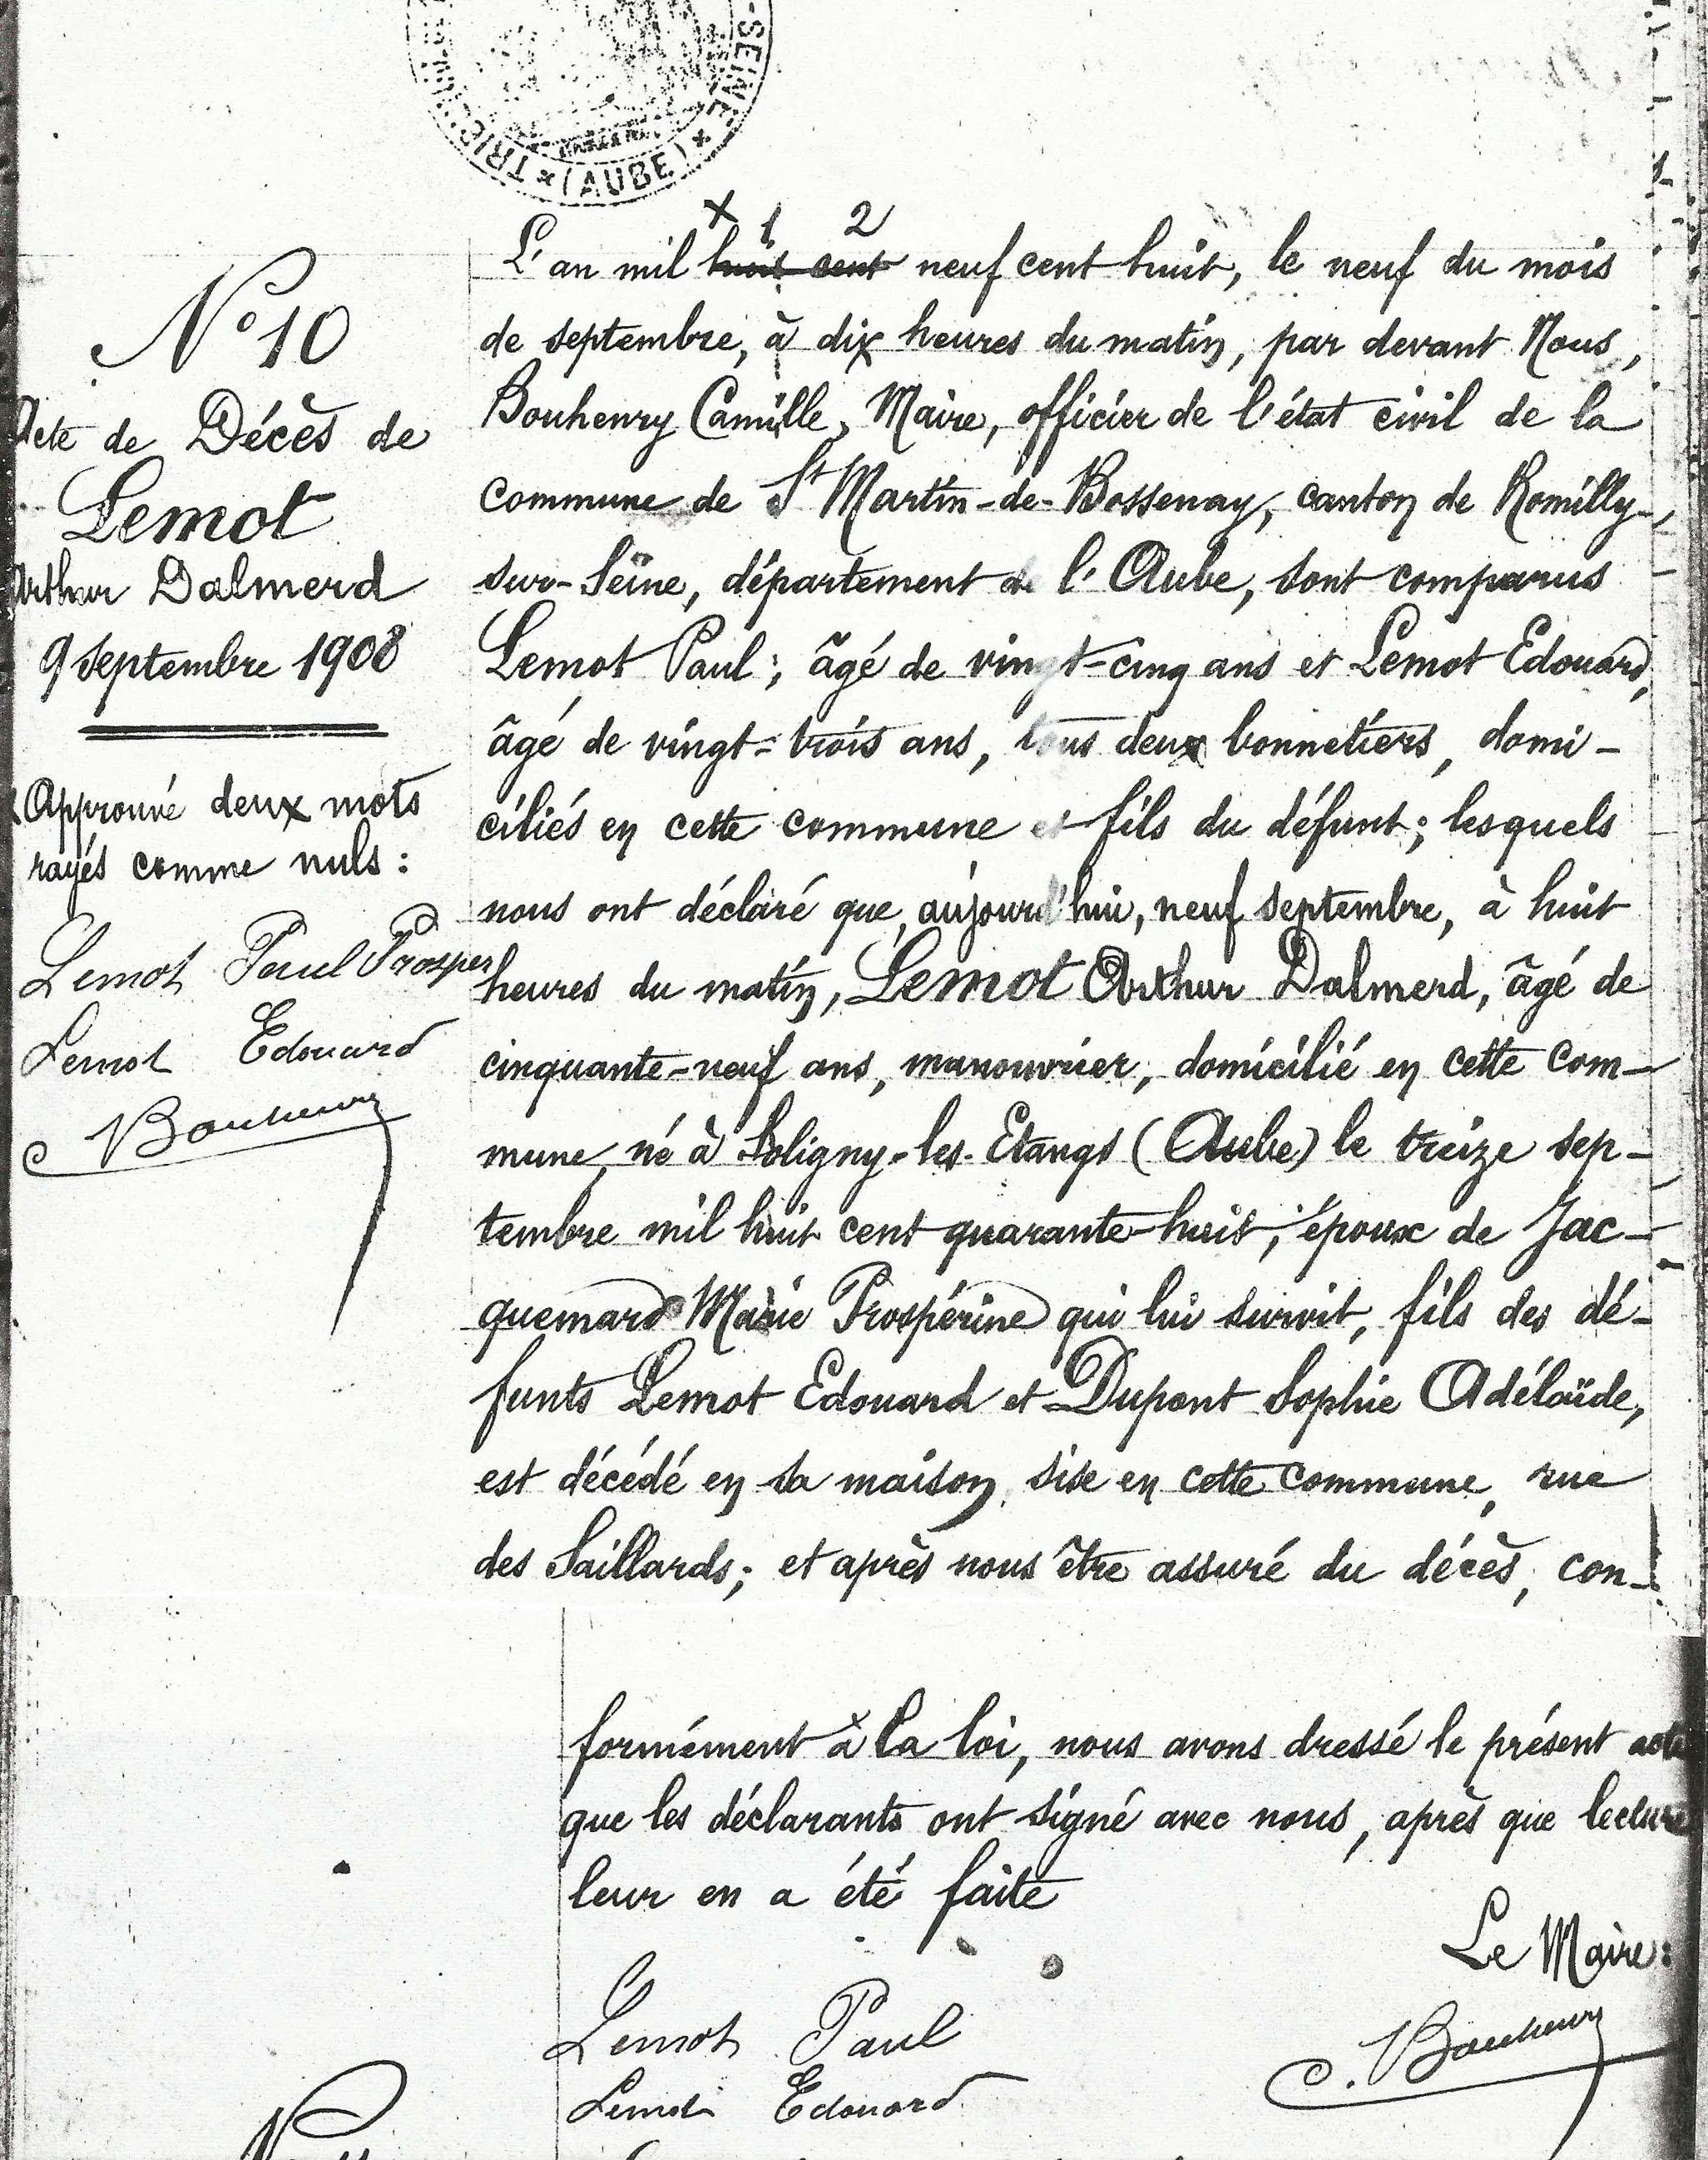 -SEINE * (AUBE) * TRIB
N° 10
Acte de Décès de
Lemot
Arthur Dalmerd
9 septembre 1908
x Approuvé deux mots
rayés comme nuls :
Lemot Paul Prosper
Lemot Edouard
C. Bouhenry
x 1 2
L'an mil huit cent neuf cent huit, le neuf du mois
de septembre, à dix heures du matin, par devant Nous,
Bouhenry Camille, Maire, officier de l'état civil de la
commune de St Martin-de-Bossenay, canton de Romilly-
sur-Seine, département de l'Aube, sont comparus
Lemot Paul ; âgé de vingt-cinq ans et Lemot Edouard,
âgé de vingt-trois ans, tous deux bonnetiers, domi-
ciliés en cette commune et fils du défunt ; lesquels
nous ont déclaré que, aujourd'hui, neuf septembre, à huit
heures du matin, Lemot Arthur Dalmerd, âgé de
cinquante-neuf ans, manouvrier, domicilié en cette com-
mune, né à Soligny-les-Etangs (Aube) le treize sep-
tembre mil huit cent quarante-huit, époux de Jac-
quemard Marie Prospérine qui lui survit, fils des dé-
funts Lemot Edouard et Dupont Sophie Adélaïde,
est décédé en sa maison, sise en cette commune, rue
des Saillards ; et après nous être assuré du décès, con-
formément à la loi, nous avons dressé le présent acte
que les déclarants ont signé avec nous, après que lecture
leur en a été faite
Le Maire :
Lemot Paul
C. Bouhenry
Lemot Edouard